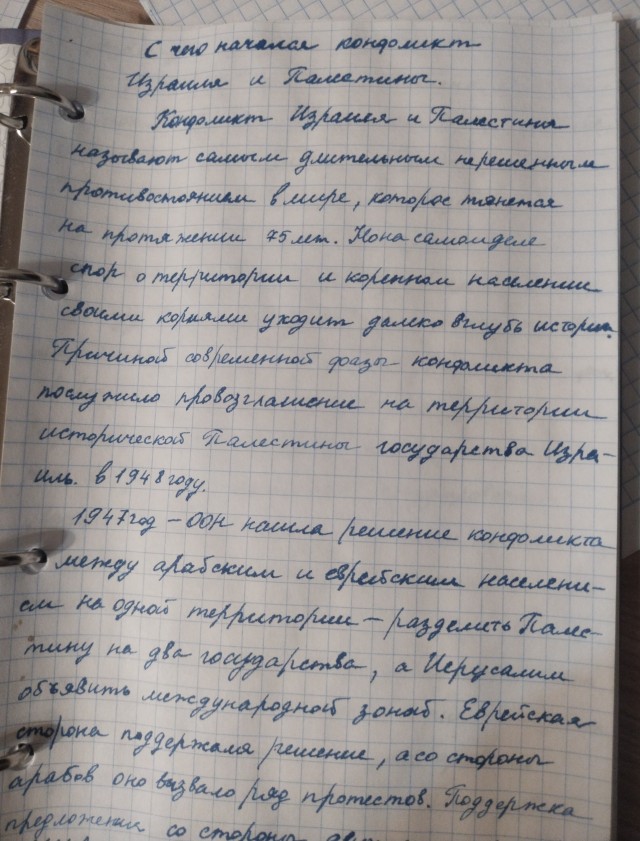 С чего начался конфликт
Израиля и Палестины.
Конфликт Израиля и Палестины
называют самым длительным нерешенным
противостоянием в мире, которое тянется
на протяжении 75 лет. Но на самом деле
спор о территории и коренном населении
своими корнями уходит далеко вглубь истории.
Причиной современной фазы конфликта
послужило провозглашение на территории
исторической Палестины государства Изра-
иль. в 1948 году.
1947 год – ООН нашла решение конфликта
между арабским и еврейским населени-
ем на одной территории – разделить Палес-
тину на два государства, а Иерусалим
объявить международной зоной. Еврейская
сторона поддержала решение, а со стороны
арабов оно вызвало ряд протестов. Поддержка
предложения со стороны